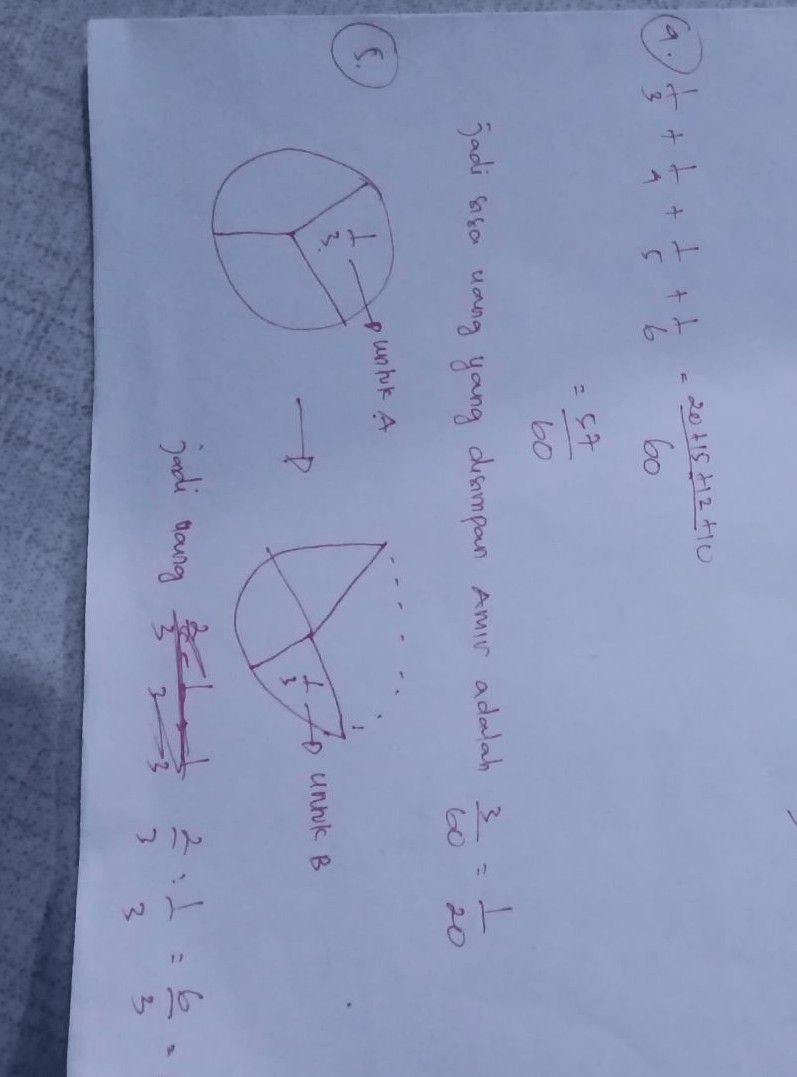 4. 1/3 + 1/4 + 1/5 + 1/6 = 20+15+12+10/60
= 57/60
Jadi sisa uang yang disimpan Amir adalah 3/60 = 1/20
5.
1/3 untuk A
1/3 untuk B
jadi uang 2/3 : 1/3 = 6/3 =